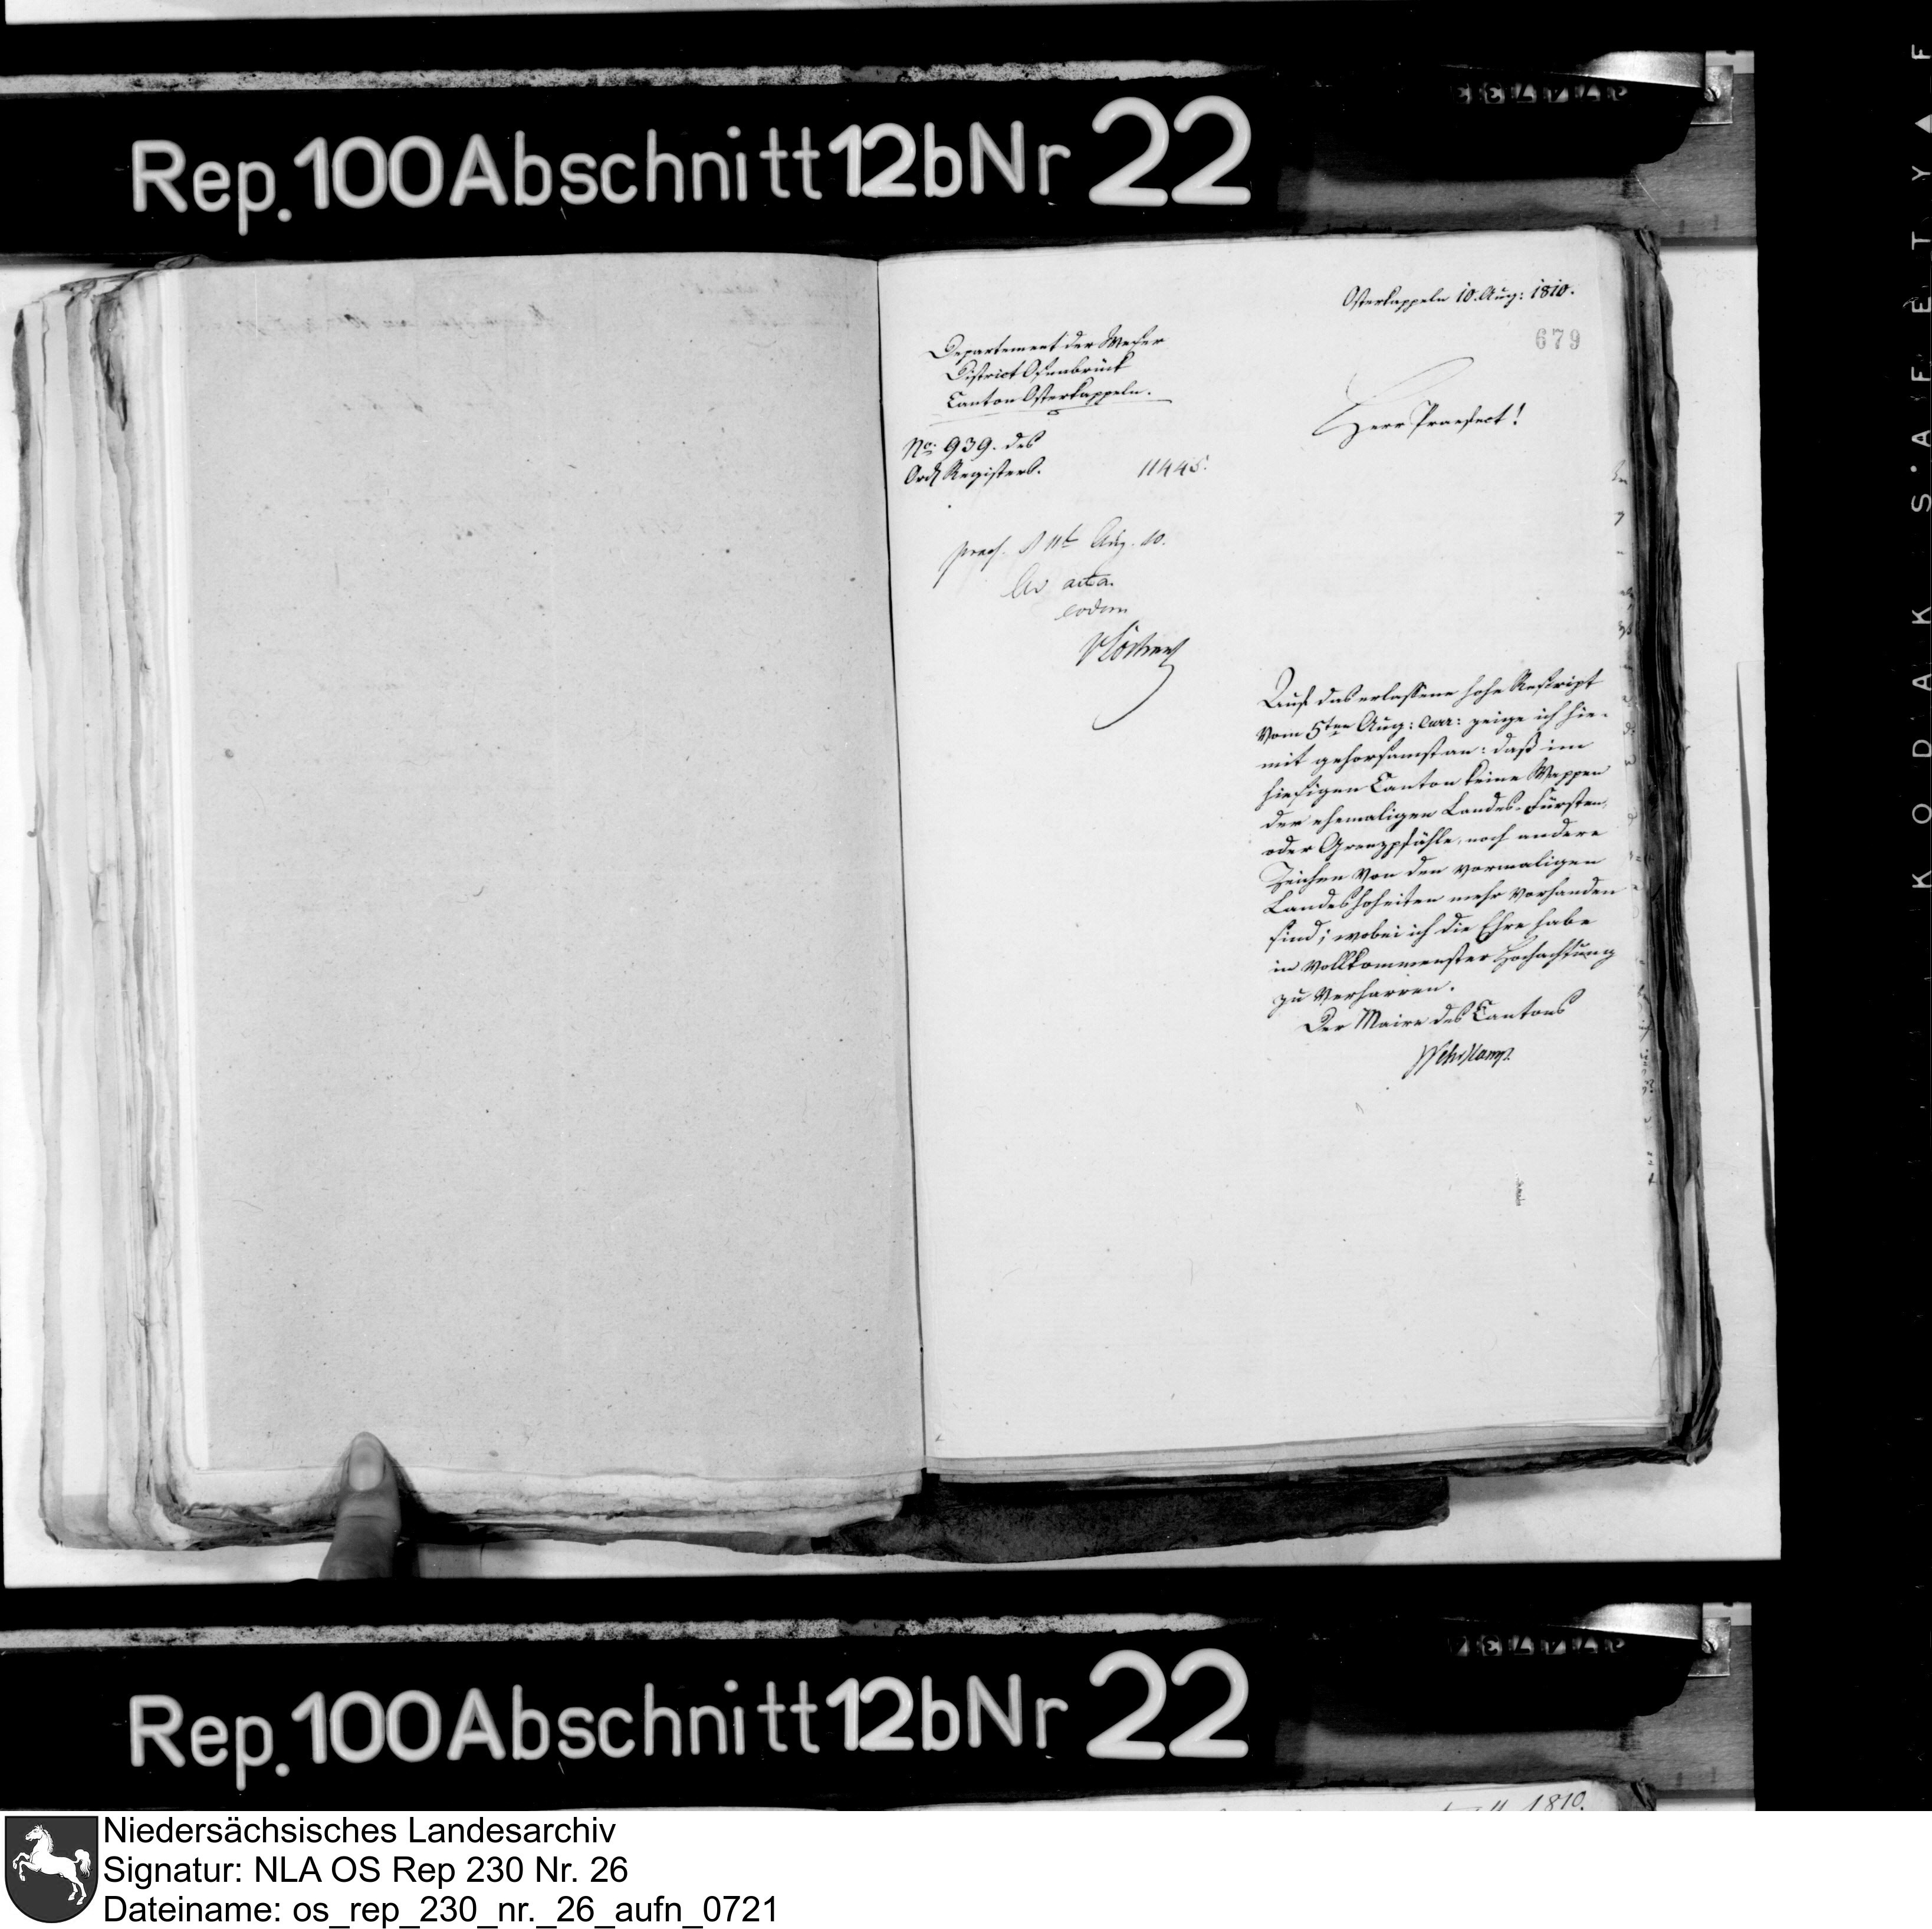 Rep. 100 Abschnitt 12b Nr 22
Osterkappeln 10. Aug: 1810.
679
Departement der Weser
District Osnabrück
Canton Osterkappeln.
No. 939. des
Ord. Registers.
11445.
Herr Praefect!
praes. d 11t Aug. 10.
Ad acta.
eodem
Auf das erlassene hohe Rescript
vom 5ten Aug: curr: zeige ich hie-
mit gehorsamst an: daß im
hiesigen Canton keine Wappen
der ehemaligen Landes-Fürsten,
oder Grenzpfähle, noch andere
Zeichen von den vormaligen
Landeshoheiten mehr vorhanden
sind; wobei ich die Ehre habe
in vollkommenster Hochachtung
zu verharren.
Der Maire des Cantons
Rep. 100 Abschnitt 12b Nr 22
1810.
KODAK SAFETY F
Niedersächsisches Landesarchiv
Signatur: NLA OS Rep 230 Nr. 26
Dateiname: os_rep_230_nr._26_aufn_0721